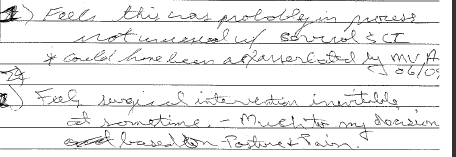 1) Feels this was probably in process
not unusual w/ SCI
* Could have been exasserbated by MVA
06/09
2) Feels surgical intervention inevitable
at sometime. - Much to my decision
based on Posture & Pain.